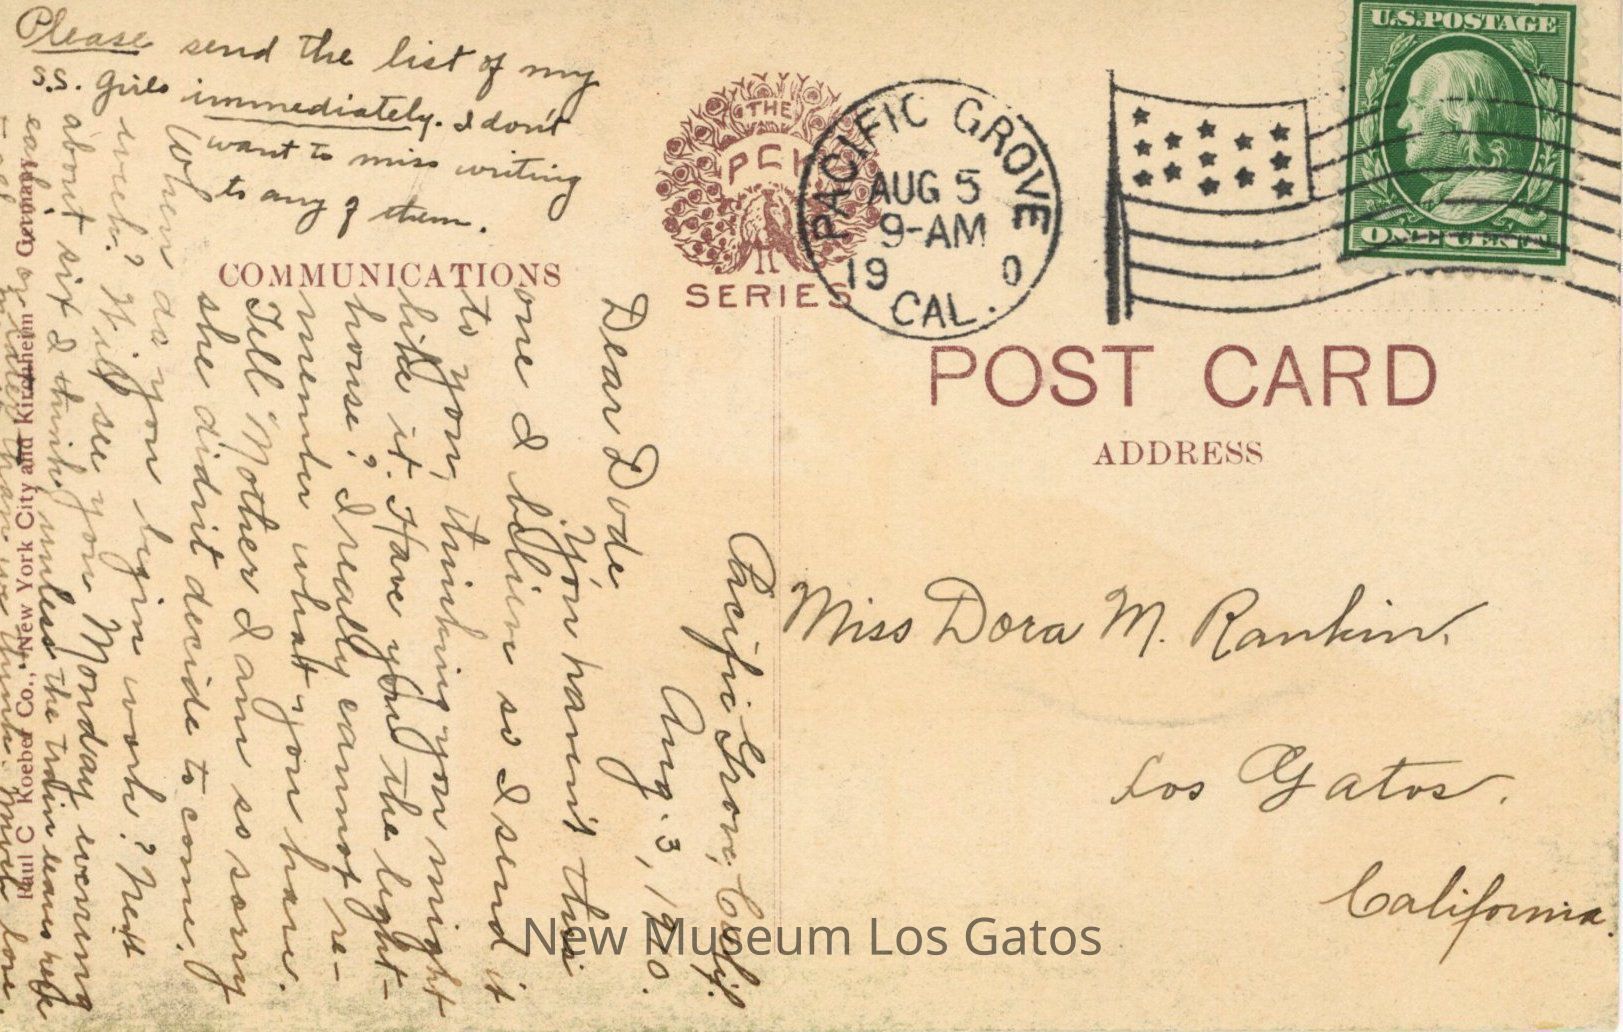 Please send the list of my
S.S. girls immediately. I don't
want to miss writing
to any of them.
COMMUNICATIONS
THE
PCK
SERIES
PACIFIC GROVE
AUG 5
9-AM
19 0
CAL.
U.S. POSTAGE
ONE CENT
POST CARD
ADDRESS
Miss Dora M. Rankin,
Los Gatos.
California.
Pacific Grove, Calif.
Aug. 3, 1910.
Dear Dode,
You haven't this
one I believe so I send it
to you, thinking you might
like it. Have you the light-
house? I really cannot re-
member what you have.
Tell Mother I am so sorry
she didn't decide to come.
When do you begin work? Next
week? Will see you Monday evening
about six I think, unless the train leaves here
earlier than we think. Much love.
Paul C Koeber Co., New York City and Kirchheim Germany
New Museum Los Gatos